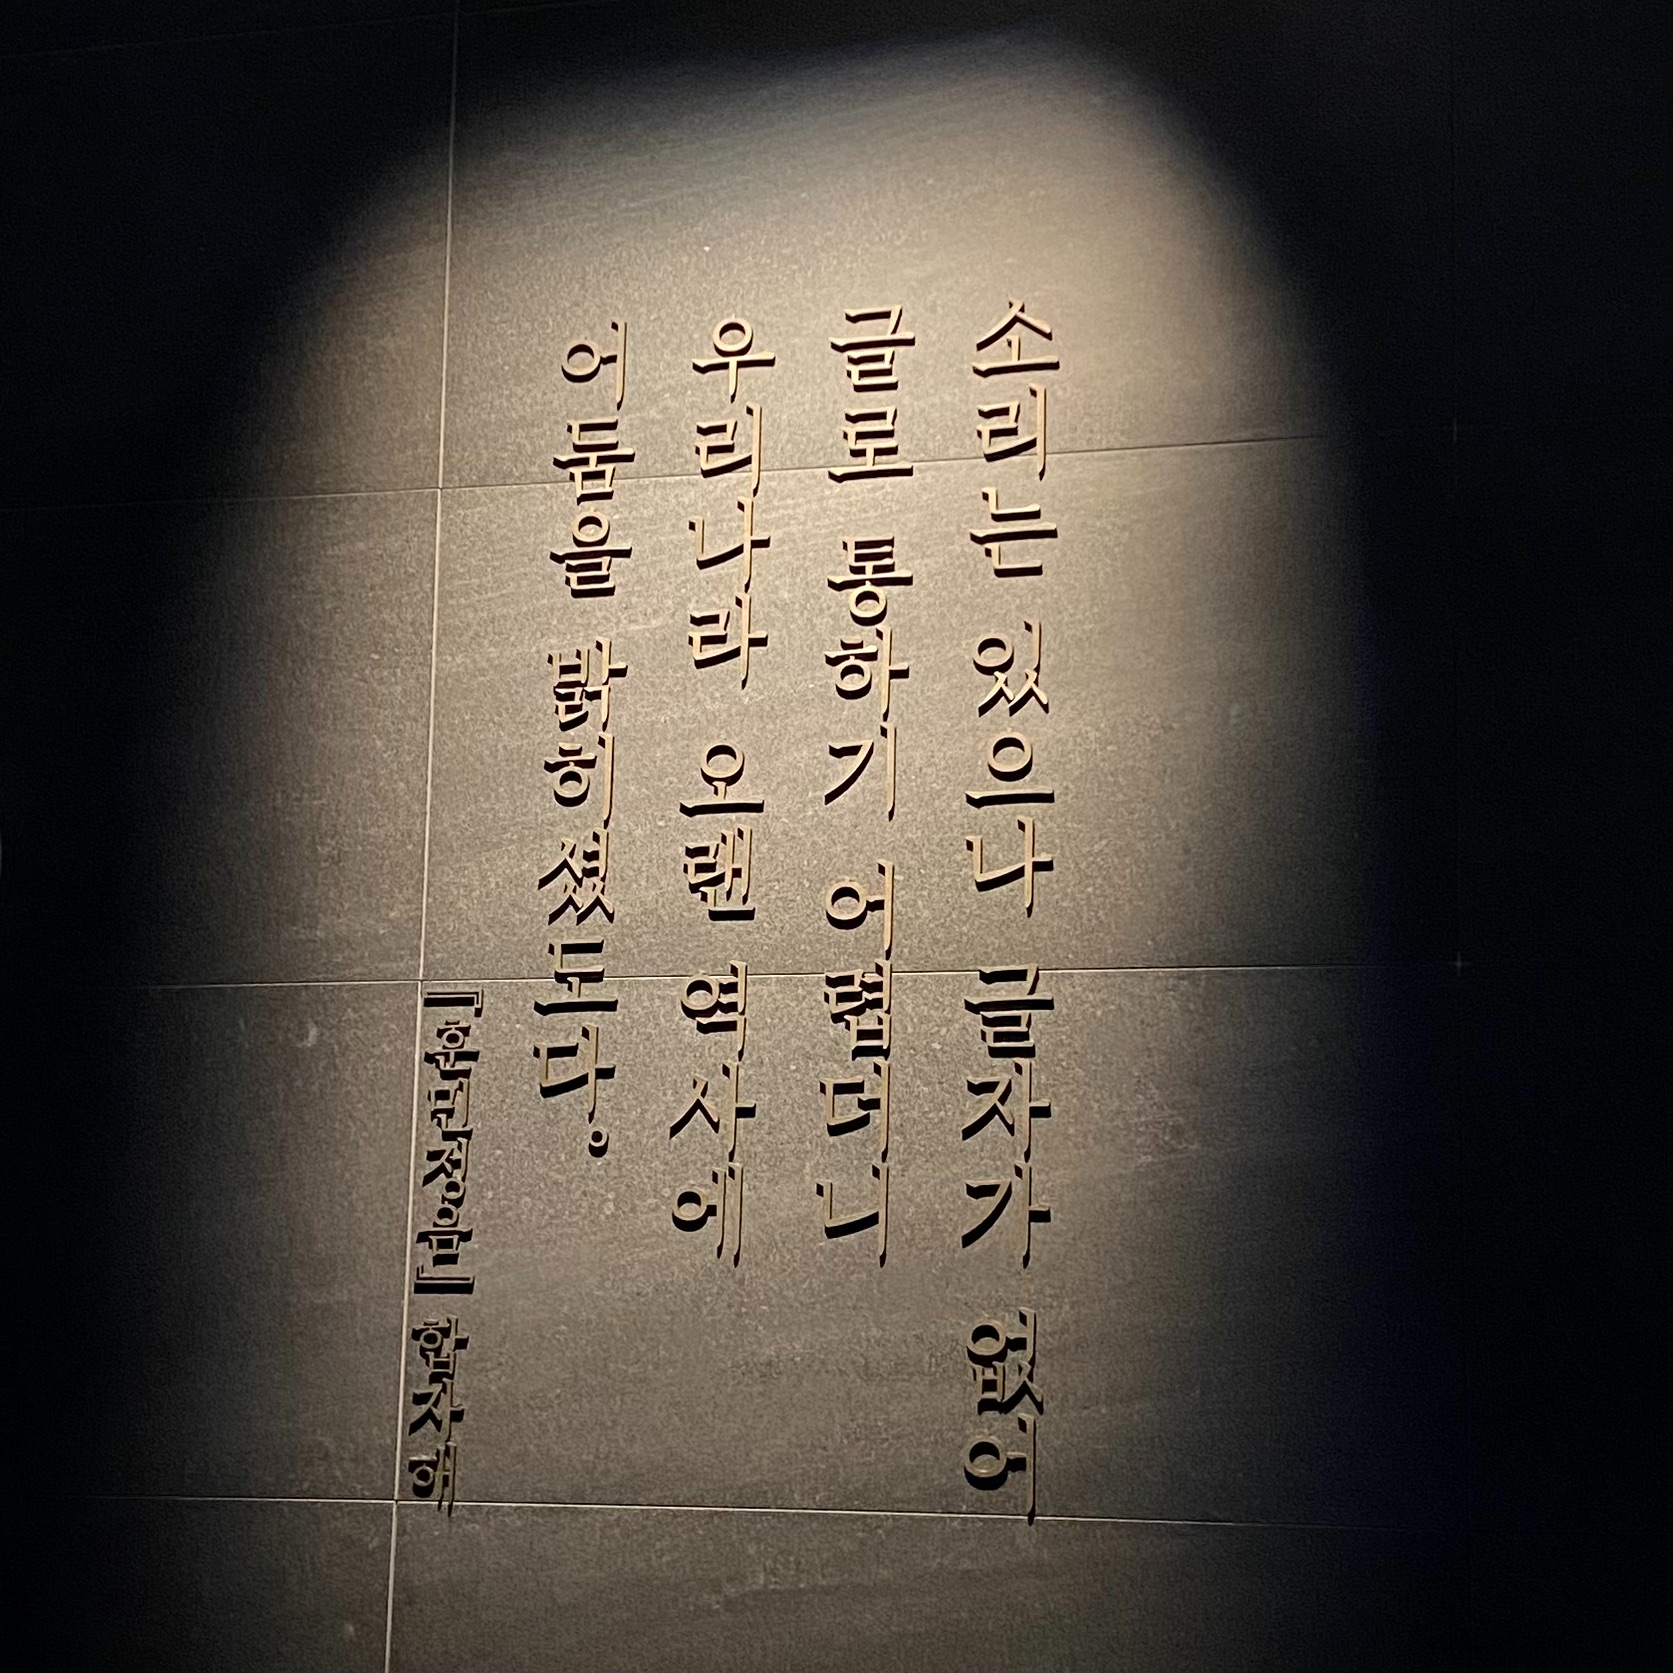 소리는 있으나 글자가 없어
글로 통하기 어렵더니
우리나라 오랜 역사에
어둠을 밝히셨도다.
『훈민정음』 합자해